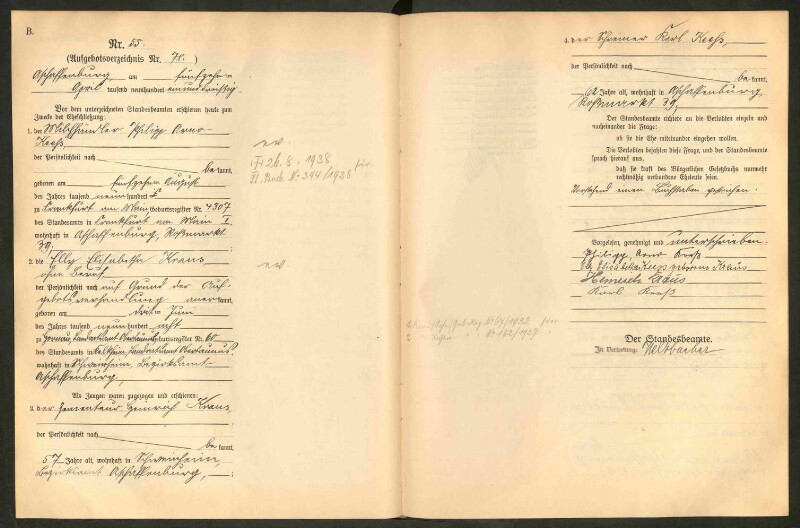 B.
Nr. 55.
(Aufgebotsverzeichnis Nr. 70.)
Aschaffenburg, am fünfzehn=
April tausend neunhundert
Vor dem unterzeichneten Standesbeamten erschienen heute zum
Zwecke der Eheschließung:
1. der Milchhändler Philipp Arno
der Persönlichkeit nach
bekannt,
geboren am fünfzehn August
des Jahres tausend neunhundert
zu Frankfurt am Main Geburtsregister Nr. 4307
des Standesamts in Frankfurt am Main I
wohnhaft in Aschaffenburg, Roßmarkt
39;
2. die Elly Elisabetha Kraus
ohne Beruf
der Persönlichkeit nach auf Grund der Auf=
gebotsverhandlung anerkannt,
geboren am dritten Juni
des Jahres tausend neunhundert acht
zu Geburtsregister Nr. 60
des Standesamts in
wohnhaft in Schweinheim, Bezirksamt
Aschaffenburg,
Als Zeugen waren zugezogen und erschienen:
3. der Heinrich Kraus,
der Persönlichkeit nach
bekannt,
57 Jahre alt, wohnhaft in Schweinheim,
Bezirksamt Aschaffenburg,
ev.
26.8.1938
No 394/1938
ev.
4. der Schreiner Karl
der Persönlichkeit nach
bekannt,
62 Jahre alt, wohnhaft in Aschaffenburg,
Roßmarkt 39,
Der Standesbeamte richtete an die Verlobten einzeln und
nacheinander die Frage:
ob sie die Ehe miteinander eingehen wollen.
Die Verlobten bejahten diese Frage, und der Standesbeamte
sprach hierauf aus,
daß sie kraft des Bürgerlichen Gesetzbuchs nunmehr
rechtmäßig verbundene Eheleute seien.
Vorstehend einen Buchstaben gestrichen.
Vorgelesen, genehmigt und unterschrieben.
Philipp Arno
Elly Elisabetha geborene Kraus
Heinrich Kraus
Karl
Der Standesbeamte.
In Vertretung: